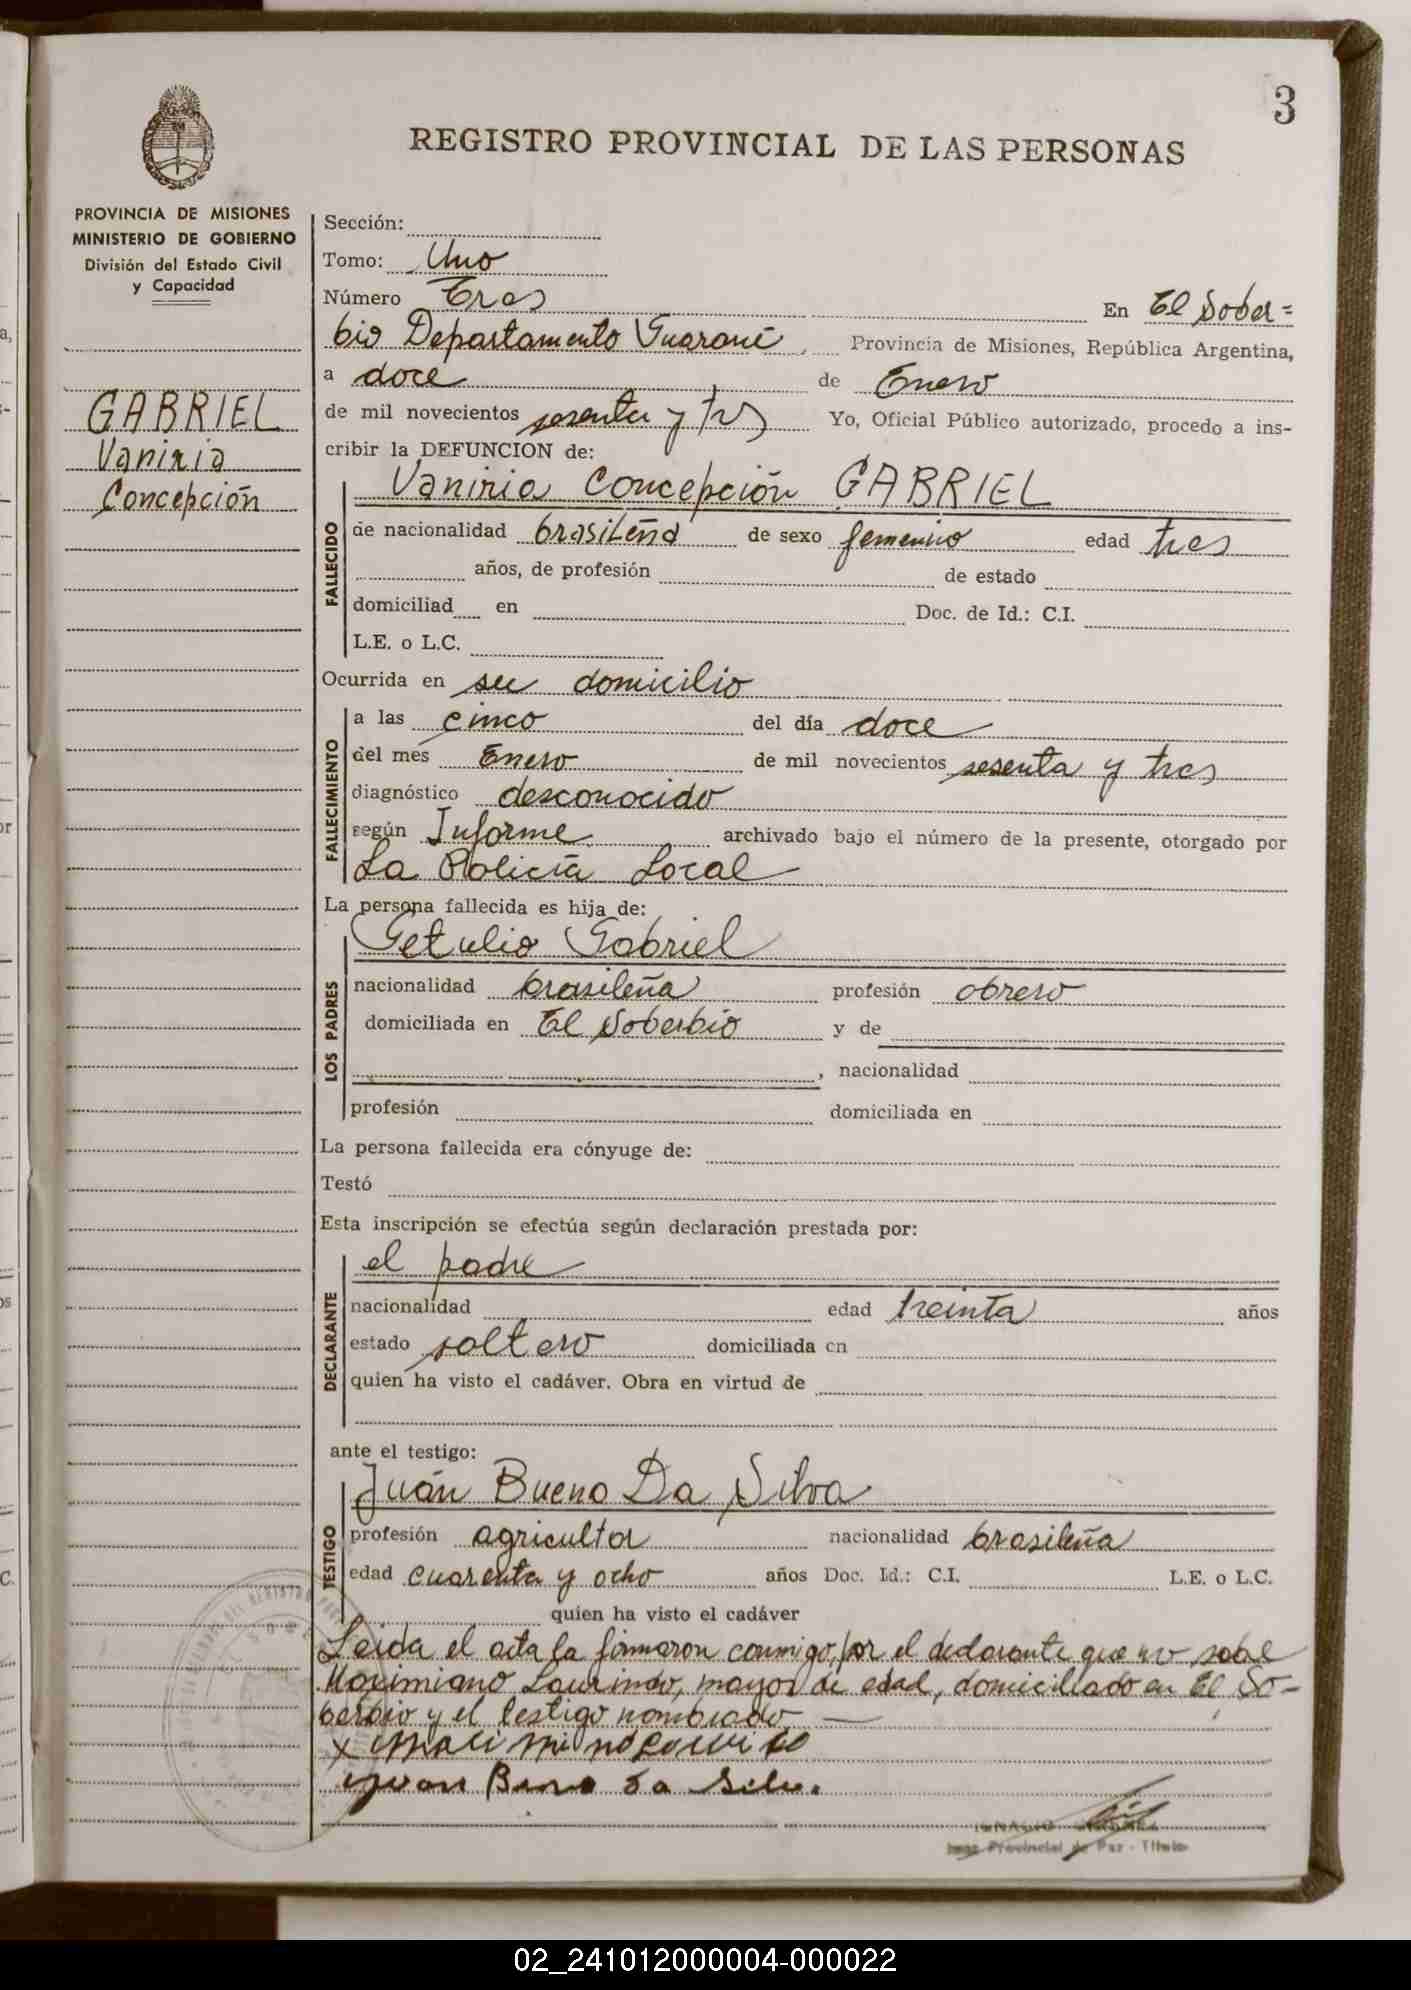 3
REGISTRO PROVINCIAL DE LAS PERSONAS
PROVINCIA DE MISIONES
MINISTERIO DE GOBIERNO
División del Estado Civil
y Capacidad
GABRIEL
Vaniria
Concepción
Sección:
Tomo: Uno
Número Tres En El Sober=
bio Departamento Guaraní, Provincia de Misiones, República Argentina,
a doce de Enero
de mil novecientos sesenta y tres Yo, Oficial Público autorizado, procedo a ins-
cribir la DEFUNCION de:
Vaniria Concepción GABRIEL
FALLECIDO
de nacionalidad brasileña de sexo femenino edad tres
años, de profesión de estado
domiciliad en Doc. de Id.: C.I.
L.E. o L.C.
Ocurrida en su domicilio
FALLECIMIENTO
a las cinco del día doce
del mes Enero de mil novecientos sesenta y tres
diagnóstico desconocido
según Informe archivado bajo el número de la presente, otorgado por
La Policía Local
La persona fallecida es hija de:
LOS PADRES
Getulio Gabriel
nacionalidad brasileña profesión obrero
domiciliada en El Soberbio y de
, nacionalidad
profesión domiciliada en
La persona fallecida era cónyuge de:
Testó
Esta inscripción se efectúa según declaración prestada por:
DECLARANTE
el padre
nacionalidad edad treinta años
estado soltero domiciliada en
quien ha visto el cadáver. Obra en virtud de
ante el testigo:
TESTIGO
Juán Bueno Da Silva
profesión agricultor nacionalidad brasileña
edad cuarenta y ocho años Doc. Id.: C.I. L.E. o L.C.
quien ha visto el cadáver
Leida el acta la firmaron conmigo, por el declarante que no sabe
Maximiano Laurindo, mayor de edad, domicillado en El So-
berbio y el testigo nombrado
x
Juan Da Silv.
IGNACIO
Juez Provincial de Paz - Titular
02_241012000004-000022